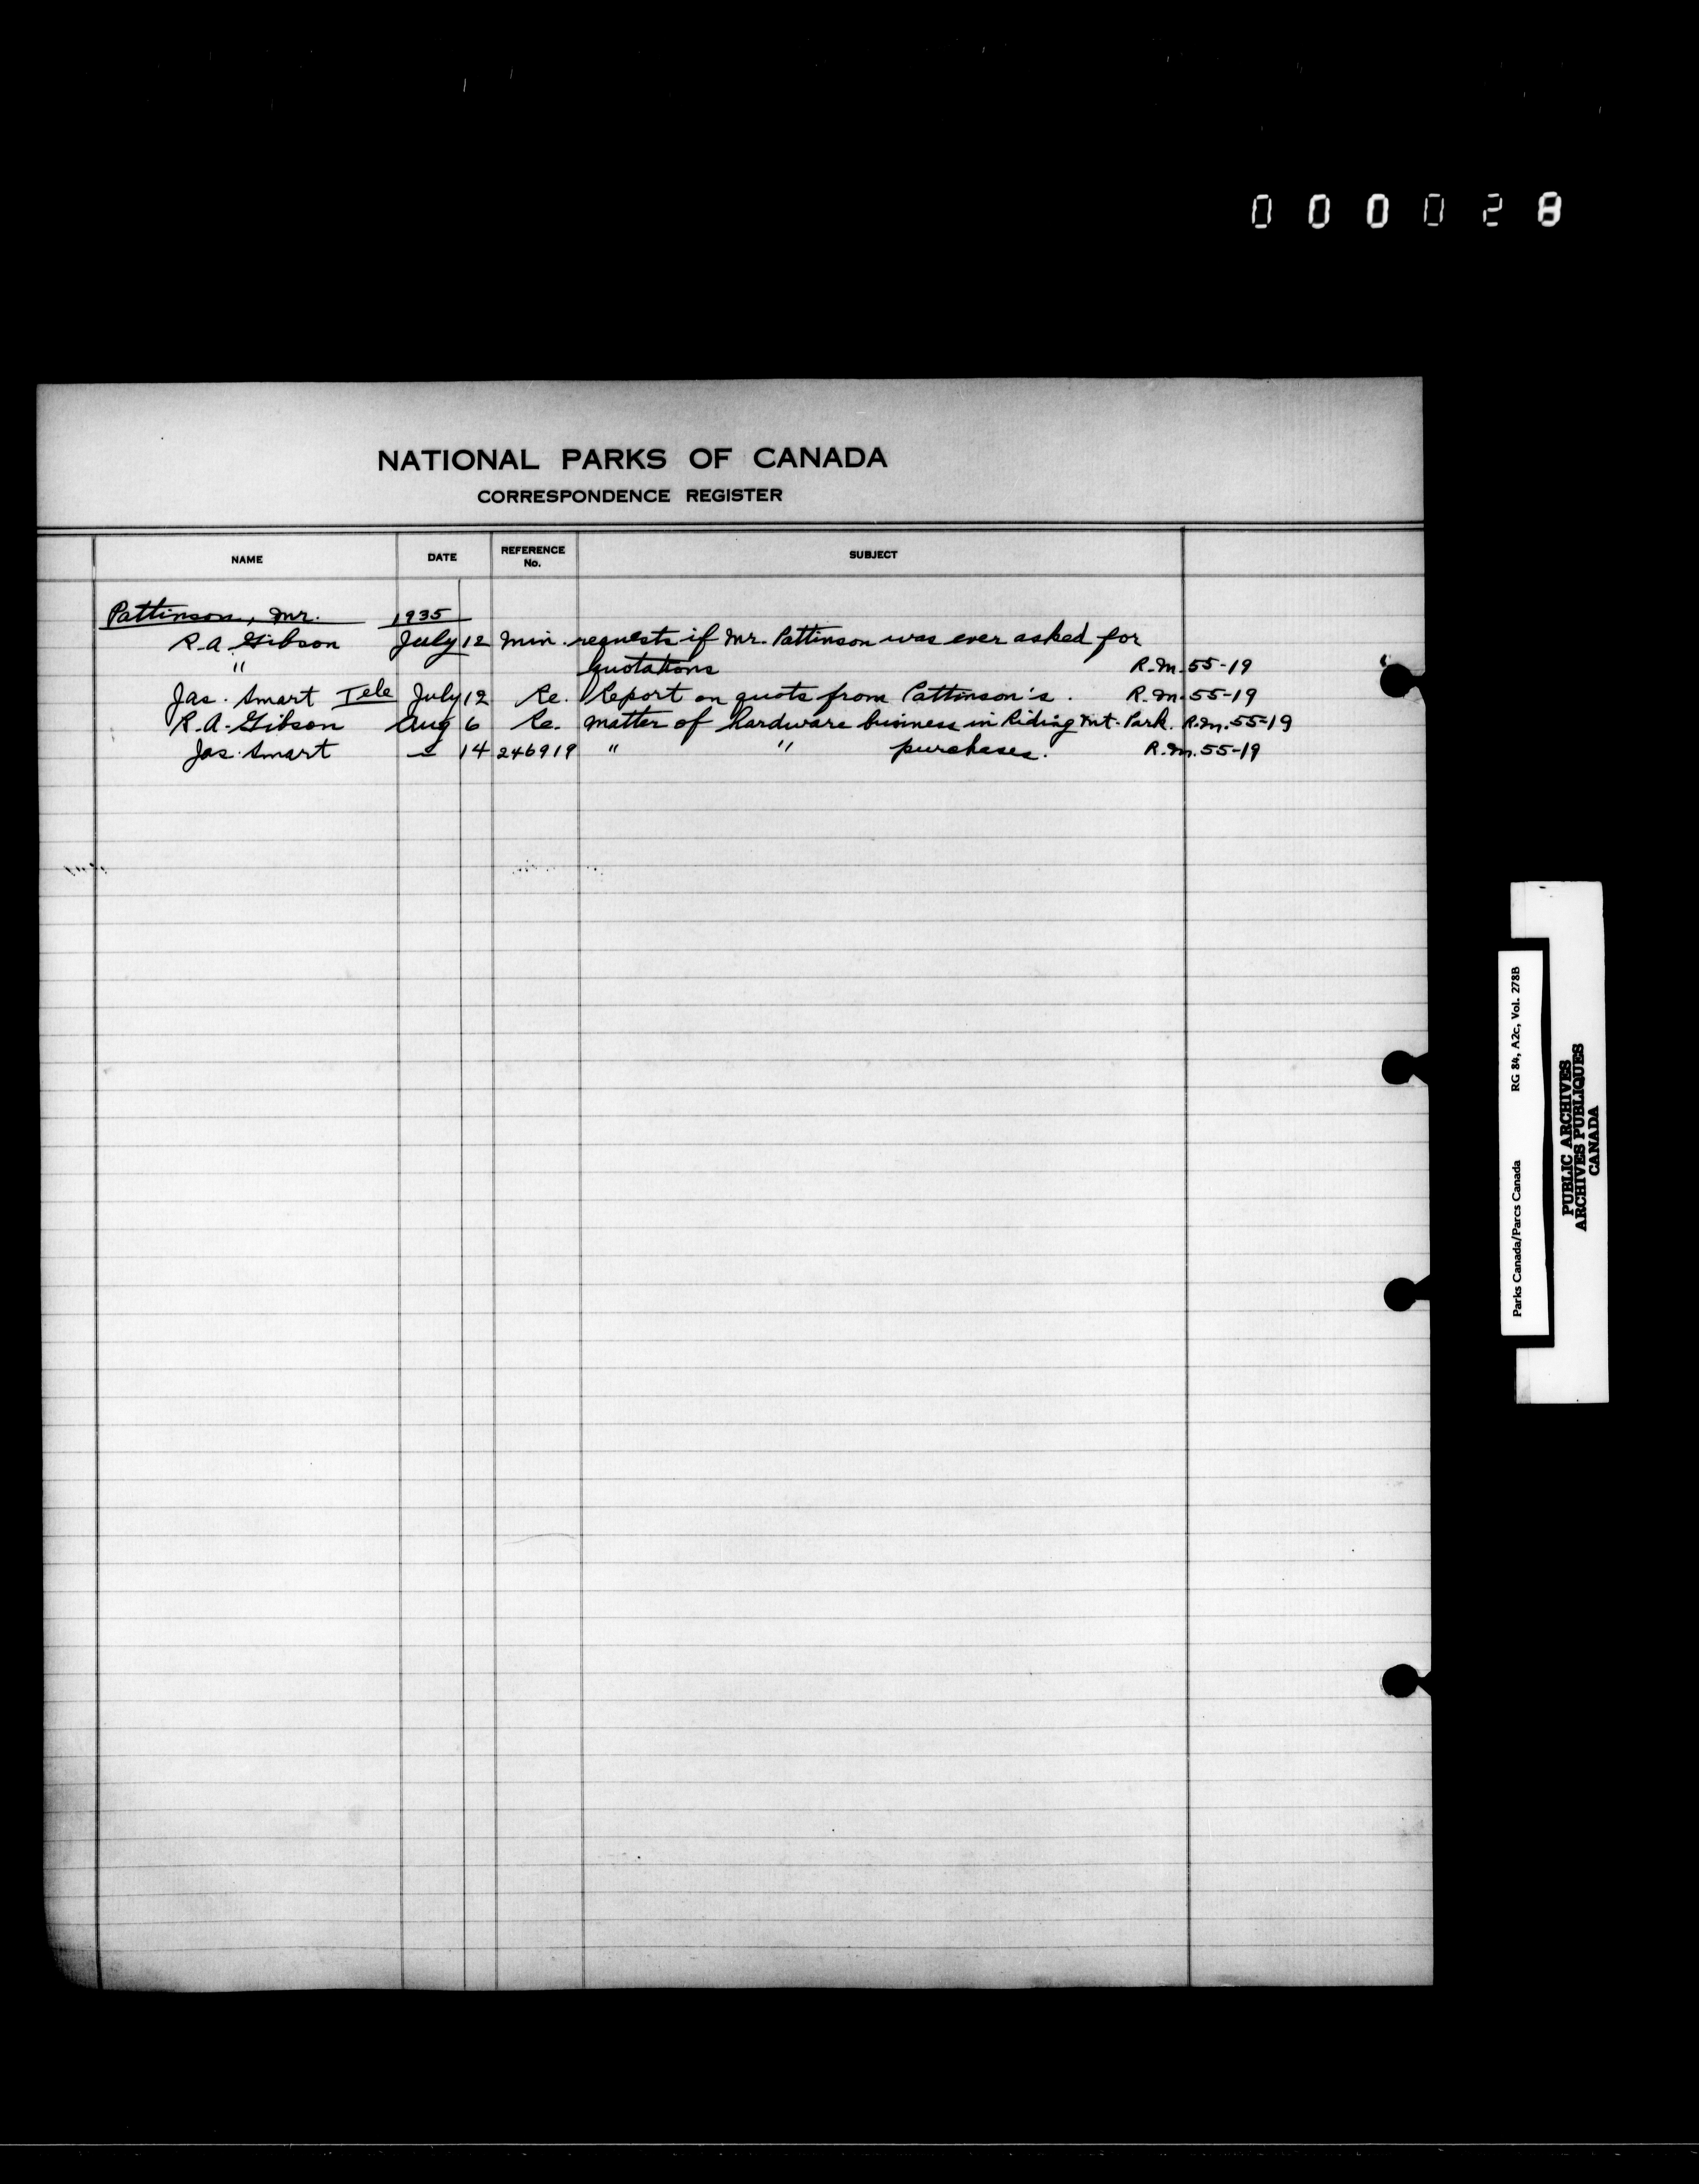 000028
NATIONAL PARKS OF CANADA
CORRESPONDENCE REGISTER
NAME DATE REFERENCE No. SUBJECT
Pattinson, Mr. 1935
R.A. Gibson July 12 Min. requests if Mr. Pattinson was ever asked for
" quotations R.M. 55-19
Jas. Smart Tele July 12 Re. Report on quots from Pattinson's. R.M. 55-19
R.A. Gibson Aug 6 Re. matter of hardware business in Riding Mt. Park. R.M. 55-19
Jas. Smart " 14 246919 " " purchases. R.M. 55-19
Parks Canada/Parcs Canada RG 84, A2c, Vol. 278B
PUBLIC ARCHIVES
ARCHIVES PUBLIQUES
CANADA